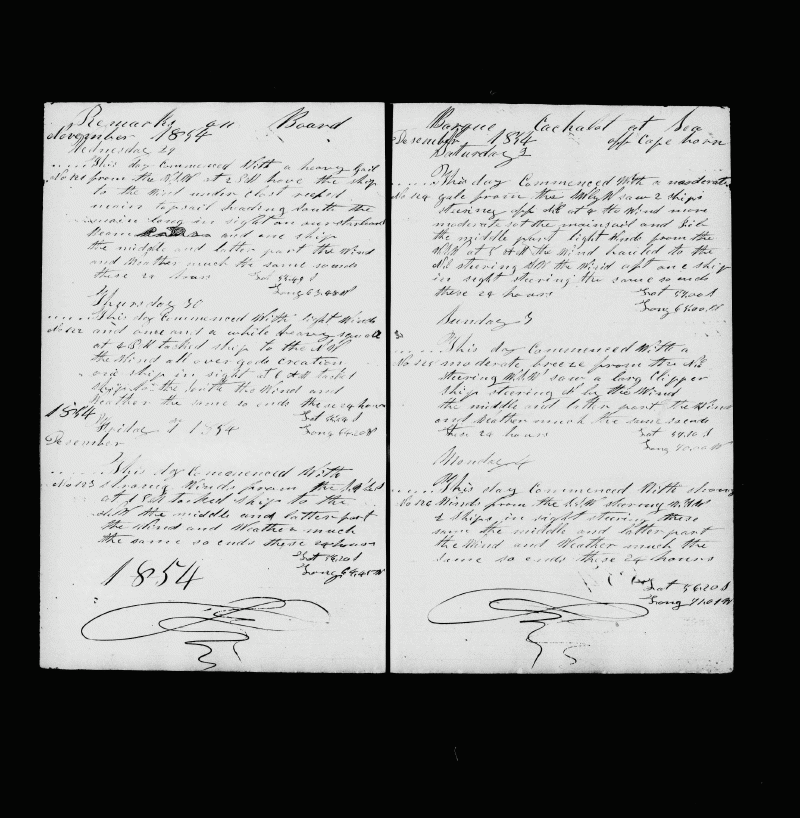 Remarks on Board
November 1854
Wednesday 29
This day Commenced With a heavy Gail
No 121 from the N.W at 2 P.M hove the ship
to the Wind under clost reefed
main topsail heading South the
main long in sight on our starboard
and one ship
the middle and latter part the Wind
and Weather much the same so ends
these 24 hours Lat
Long
Thursday 30
This day Commenced With light Winds
No 122 and once and a while heavy squall
at 4 P.M tacked ship to the N.W
the Wind all over gods creation
one ship in sight at 6 A.M tacked
ship to the with the Wind and
Weather the same so ends these 24 hours
1854 Lat
Friday 1 1854 Long
Desember
This day Commenced With
No 123 strong Winds from the
at P.M tacked ship to the
the middle and latter part
the Wind and Weather much
the same so ends these 24 hours
Lat 56.20 S
1854 Long
Barque Cachalot at Sea
Desember 1854 off Cape horn
Saturday 2
This day Commenced With a moderate
No 124 gale from the saw 2 ships
steering off at 4 the Wind more
moderate set the mainsail and Jib
the middle part light Winds from the
at A.M the Wind hauled to the
steering the Wind aft one ship
in sight steering the same so ends
these 24 hours Lat
Long
Sunday 3
This day Commenced With a
No 125 moderate breeze from the
steering saw a larg Clipper
ship steering by the Wind
the middle and latter part the Wind
and Weather much the same so ends
these 24 hours Lat
Long
Monday 4
This day Commenced With strong
No 126 Winds from the staring
2 ships in sight steering these
same the middle and latter part
the Wind and Weather much the
same so ends these 24 hours
Lat 56.20 S
Long